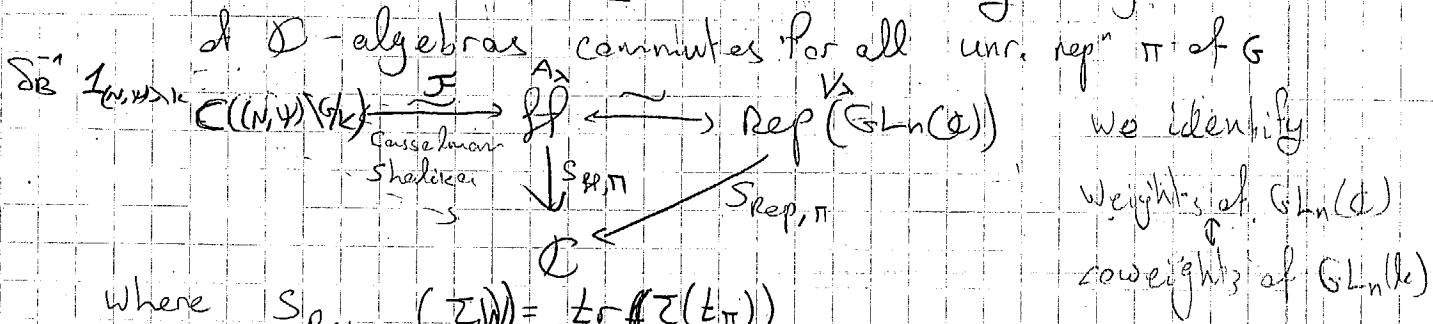 of ℂ-algebras commutes for all unr. repⁿ π of G
δ_B^{-1} 1_{(N,ψ)λK} C((N,ψ)\G/K) →^{F}_{∼} ℋ ←∼→ Rep(GLn(ℂ)) we identify
A_λ V_λ
Casselman
Shalika
S_{ℋ,π} S_{Rep,π} weights of GLn(ℂ)
↕
ℂ coweights of GLn(k)
where (τ,W) = tr(τ(t_π))